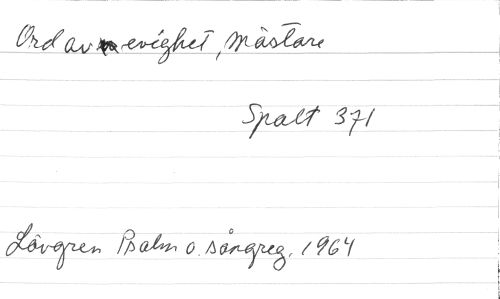 Ord av evighet, mästare
Spalt 371
Lövgren Psalm o. sångreg. 1964